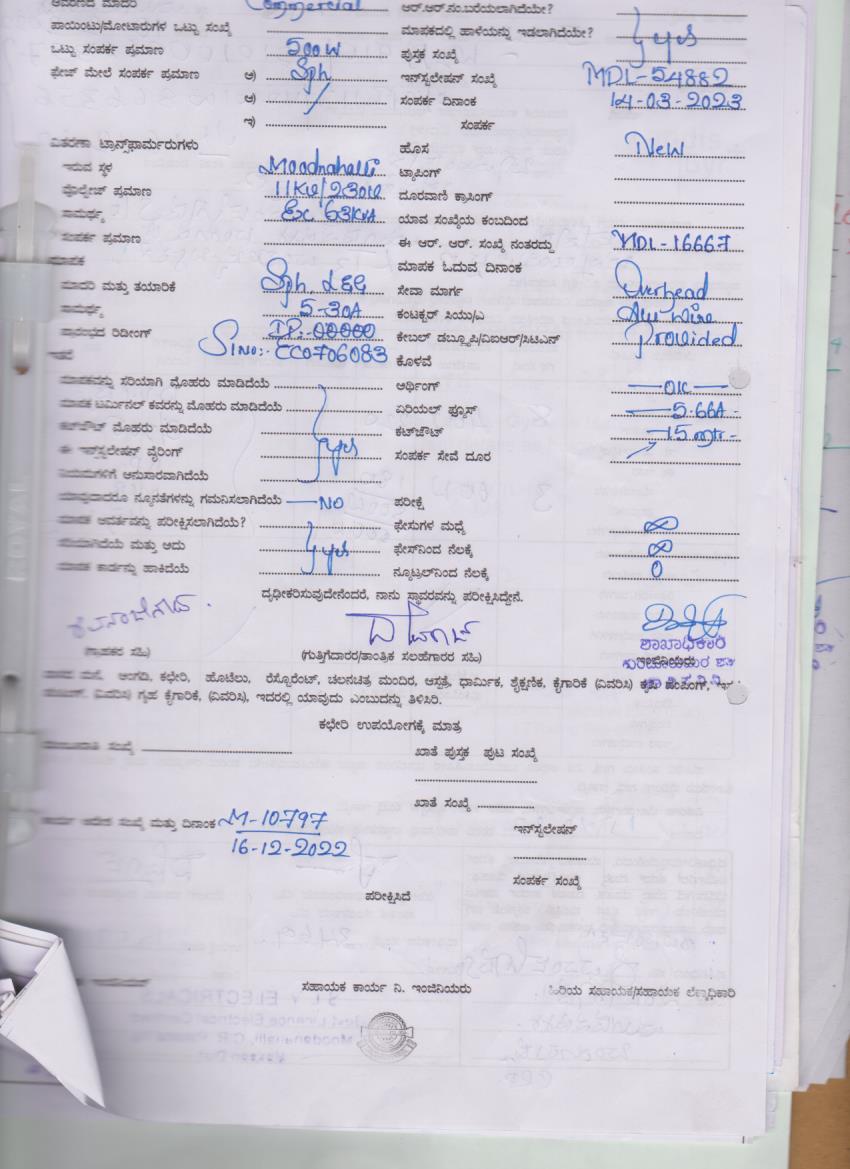 ಆವರಣದ ಮಾದರಿ Commercial ಆರ್.ಆರ್.ಸಂ.ಬರೆಯಲಾಗಿದೆಯೇ?
ಪಾಯಿಂಟು/ಮೋಟಾರುಗಳ ಒಟ್ಟು ಸಂಖ್ಯೆ ಮಾಪಕದಲ್ಲಿ ಹಾಳೆಯನ್ನು ಇಡಲಾಗಿದೆಯೇ? yes
ಒಟ್ಟು ಸಂಪರ್ಕ ಪ್ರಮಾಣ 500W ಪುಸ್ತಕ ಸಂಖ್ಯೆ
ಫೇಜ್ ಮೇಲೆ ಸಂಪರ್ಕ ಪ್ರಮಾಣ ಅ) Sph ಇನ್‌ಸ್ಟಲೇಷನ್ ಸಂಖ್ಯೆ MDL-54882
ಆ) ಸಂಪರ್ಕ ದಿನಾಂಕ 14-03-2023
ಇ) ಸಂಪರ್ಕ
ವಿತರಣಾ ಟ್ರಾನ್ಸ್‌ಫಾರ್ಮರುಗಳು ಹೊಸ New
ಇರುವ ಸ್ಥಳ Moodnahalli ಟ್ಯಾಪಿಂಗ್
ವೋಲ್ಟೇಜ್ ಪ್ರಮಾಣ 11KV/230V ದೂರವಾಣಿ ಕ್ರಾಸಿಂಗ್
ಸಾಮರ್ಥ್ಯ Ex 63KVA ಯಾವ ಸಂಖ್ಯೆಯ ಕಂಬದಿಂದ
ಸಂಪರ್ಕ ಪ್ರಮಾಣ ಈ ಆರ್. ಆರ್. ಸಂಖ್ಯೆ ನಂತರದ್ದು MDL-16667
ಮಾಪಕ ಮಾಪಕ ಓದುವ ದಿನಾಂಕ
ಮಾದರಿ ಮತ್ತು ತಯಾರಿಕೆ Sph, L&G ಸೇವಾ ಮಾರ್ಗ Overhead
ಸಾಮರ್ಥ್ಯ 5-30A ಕಂಟಕ್ಟರ್ ಸಿಯು/ಎ Alu wire
ಪ್ರಾರಂಭದ ರೀಡಿಂಗ್ IR:-00000 ಕೇಬಲ್ ಡಬ್ಲ್ಯೂಪಿ/ವಿಐಆರ್/ಸಿಟಿಎಸ್ Provided
ಇತರೆ Slno:- CC0706083 ಕೊಳವೆ
ಮಾಪಕವನ್ನು ಸರಿಯಾಗಿ ಮೊಹರು ಮಾಡಿದೆಯೆ ಅರ್ಥಿಂಗ್ OK
ಮಾಪಕ ಟರ್ಮಿನಲ್ ಕವರನ್ನು ಮೊಹರು ಮಾಡಿದೆಯೆ ಏರಿಯಲ್ ಫ್ಯೂಸ್ 5.66A
ಕಟ್‌ಔಟ್ ಮೊಹರು ಮಾಡಿದೆಯೆ ಕಟ್‌ಔಟ್ 15 mtr
ಈ ಇನ್‌ಸ್ಟಲೇಷನ್ ವೈರಿಂಗ್ yes ಸಂಪರ್ಕ ಸೇವೆ ದೂರ
ನಿಯಮಗಳಿಗೆ ಅನುಸಾರವಾಗಿದೆಯೆ
ಯಾವುದಾದರೂ ನ್ಯೂನತೆಗಳನ್ನು ಗಮನಿಸಲಾಗಿದೆಯೆ NO ಪರೀಕ್ಷೆ
ಮಾಪಕ ಆವರ್ತವನ್ನು ಪರೀಕ್ಷಿಸಲಾಗಿದೆಯೆ? ಫೇಸುಗಳ ಮಧ್ಯೆ ∞
ಸರಿಯಾಗಿದೆಯೆ ಮತ್ತು ಅದು yes ಫೇಸ್‌ನಿಂದ ನೆಲಕ್ಕೆ ∞
ಮಾಪಕ ಕಾರ್ಡನ್ನು ಹಾಕಿದೆಯೆ ನ್ಯೂಟ್ರಲ್‌ನಿಂದ ನೆಲಕ್ಕೆ 0
ದೃಢೀಕರಿಸುವುದೇನೆಂದರೆ, ನಾನು ಸ್ಥಾವರವನ್ನು ಪರೀಕ್ಷಿಸಿದ್ದೇನೆ.
ಶಾಖಾಧಿಕಾರಿ
(ಗ್ರಾಹಕರ ಸಹಿ) (ಗುತ್ತಿಗೆದಾರರ/ತಾಂತ್ರಿಕ ಸಲಹೆಗಾರರ ಸಹಿ)
ವಾಸದ ಮನೆ, ಅಂಗಡಿ, ಕಛೇರಿ, ಹೊಟೆಲು, ರೆಸ್ಟೋರೆಂಟ್, ಚಲನಚಿತ್ರ ಮಂದಿರ, ಆಸ್ಪತ್ರೆ, ಧಾರ್ಮಿಕ, ಶೈಕ್ಷಣಿಕ, ಕೈಗಾರಿಕೆ (ವಿವರಿಸಿ) ಕೃಷಿ ಪಂಪಿಂಗ್,
(ವಿವರಿಸಿ) ಗೃಹ ಕೈಗಾರಿಕೆ, (ವಿವರಿಸಿ), ಇದರಲ್ಲಿ ಯಾವುದು ಎಂಬುದನ್ನು ತಿಳಿಸಿರಿ.
ಕಛೇರಿ ಉಪಯೋಗಕ್ಕೆ ಮಾತ್ರ
ಸಂಖ್ಯೆ ಖಾತೆ ಪುಸ್ತಕ ಪುಟ ಸಂಖ್ಯೆ
ಖಾತೆ ಸಂಖ್ಯೆ
ಕಾರ್ಯ ಆದೇಶ ಸಂಖ್ಯೆ ಮತ್ತು ದಿನಾಂಕ M-10797 ಇನ್‌ಸ್ಟಲೇಷನ್
16-12-2022
ಸಂಪರ್ಕ ಸಂಖ್ಯೆ
ಪರೀಕ್ಷಿಸಿದೆ
ಸಹಾಯಕ ಕಾರ್ಯ ನಿ. ಇಂಜಿನಿಯರು ಹಿರಿಯ ಸಹಾಯಕ/ಸಹಾಯಕ ಲೆಕ್ಕಾಧಿಕಾರಿ